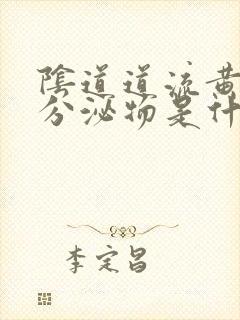 陰道道流黄
分泌物是什
李定昌